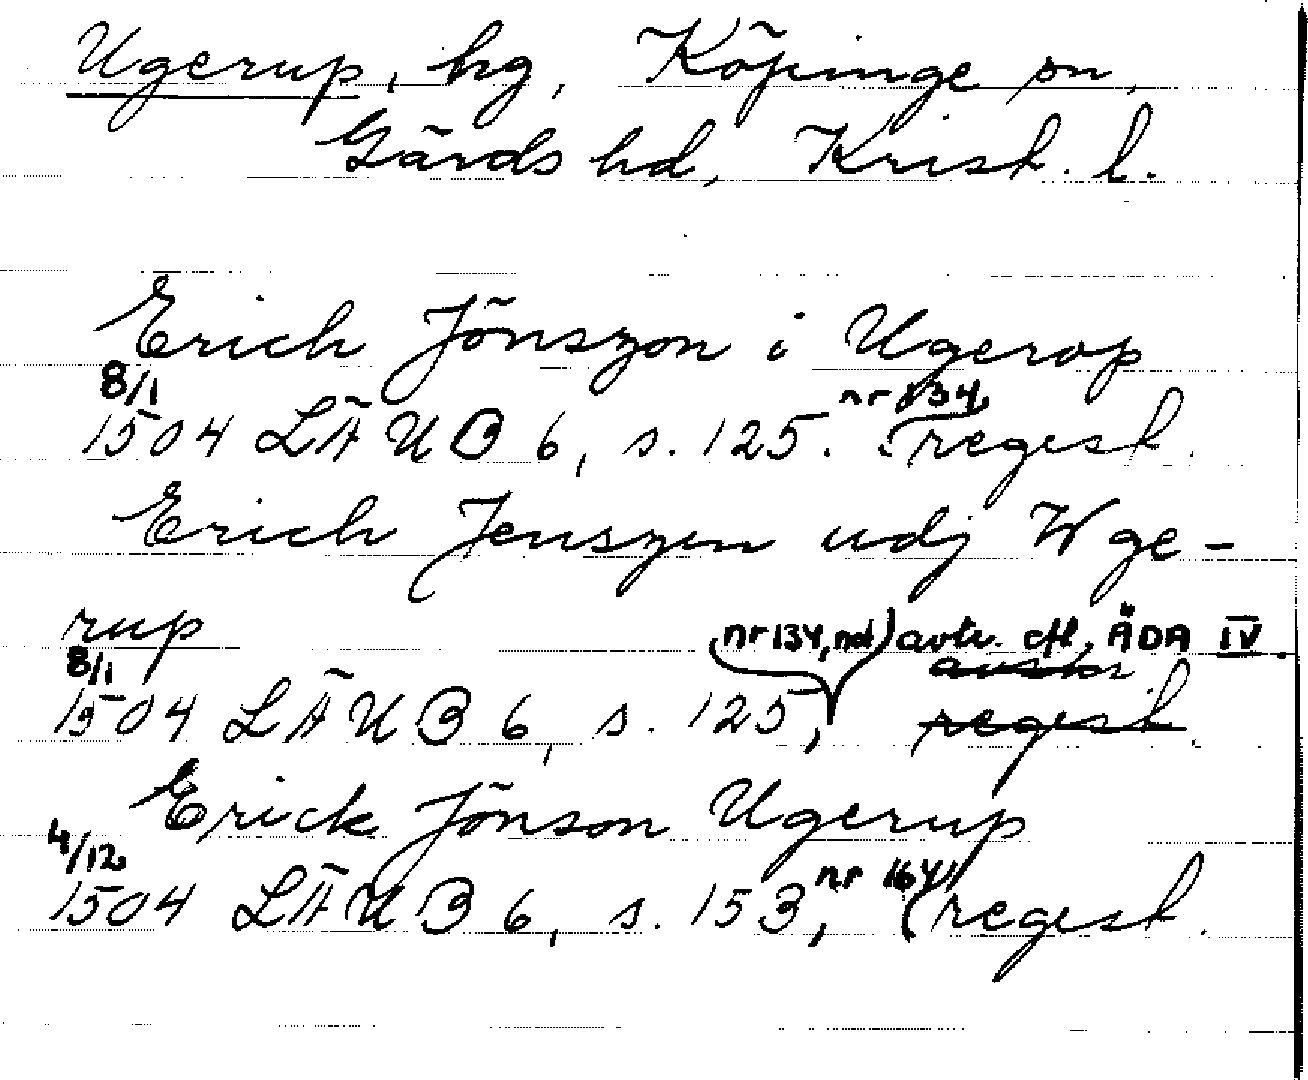 Ugerup, hg, Köpinge sn,
Gärds hd, Krist. l.
Erich Jönszon i Ugerop
8/1 nr 134,
1504 LÄUB 6, s. 125. (regest.
Erich Jenszen udj Wge-
rup
8/1 (nr 134, nd) avtr. eft. ÄDA IV.
1504 LÄUB 6, s. 125, regest.
Erick Jönson Ugerup
4/12 nr 164,
1504 LÄUB 6, s. 153, (regest.